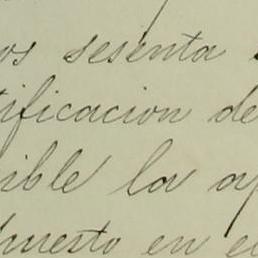 os sesenta
tificacion de
ible la ap
puesto en e